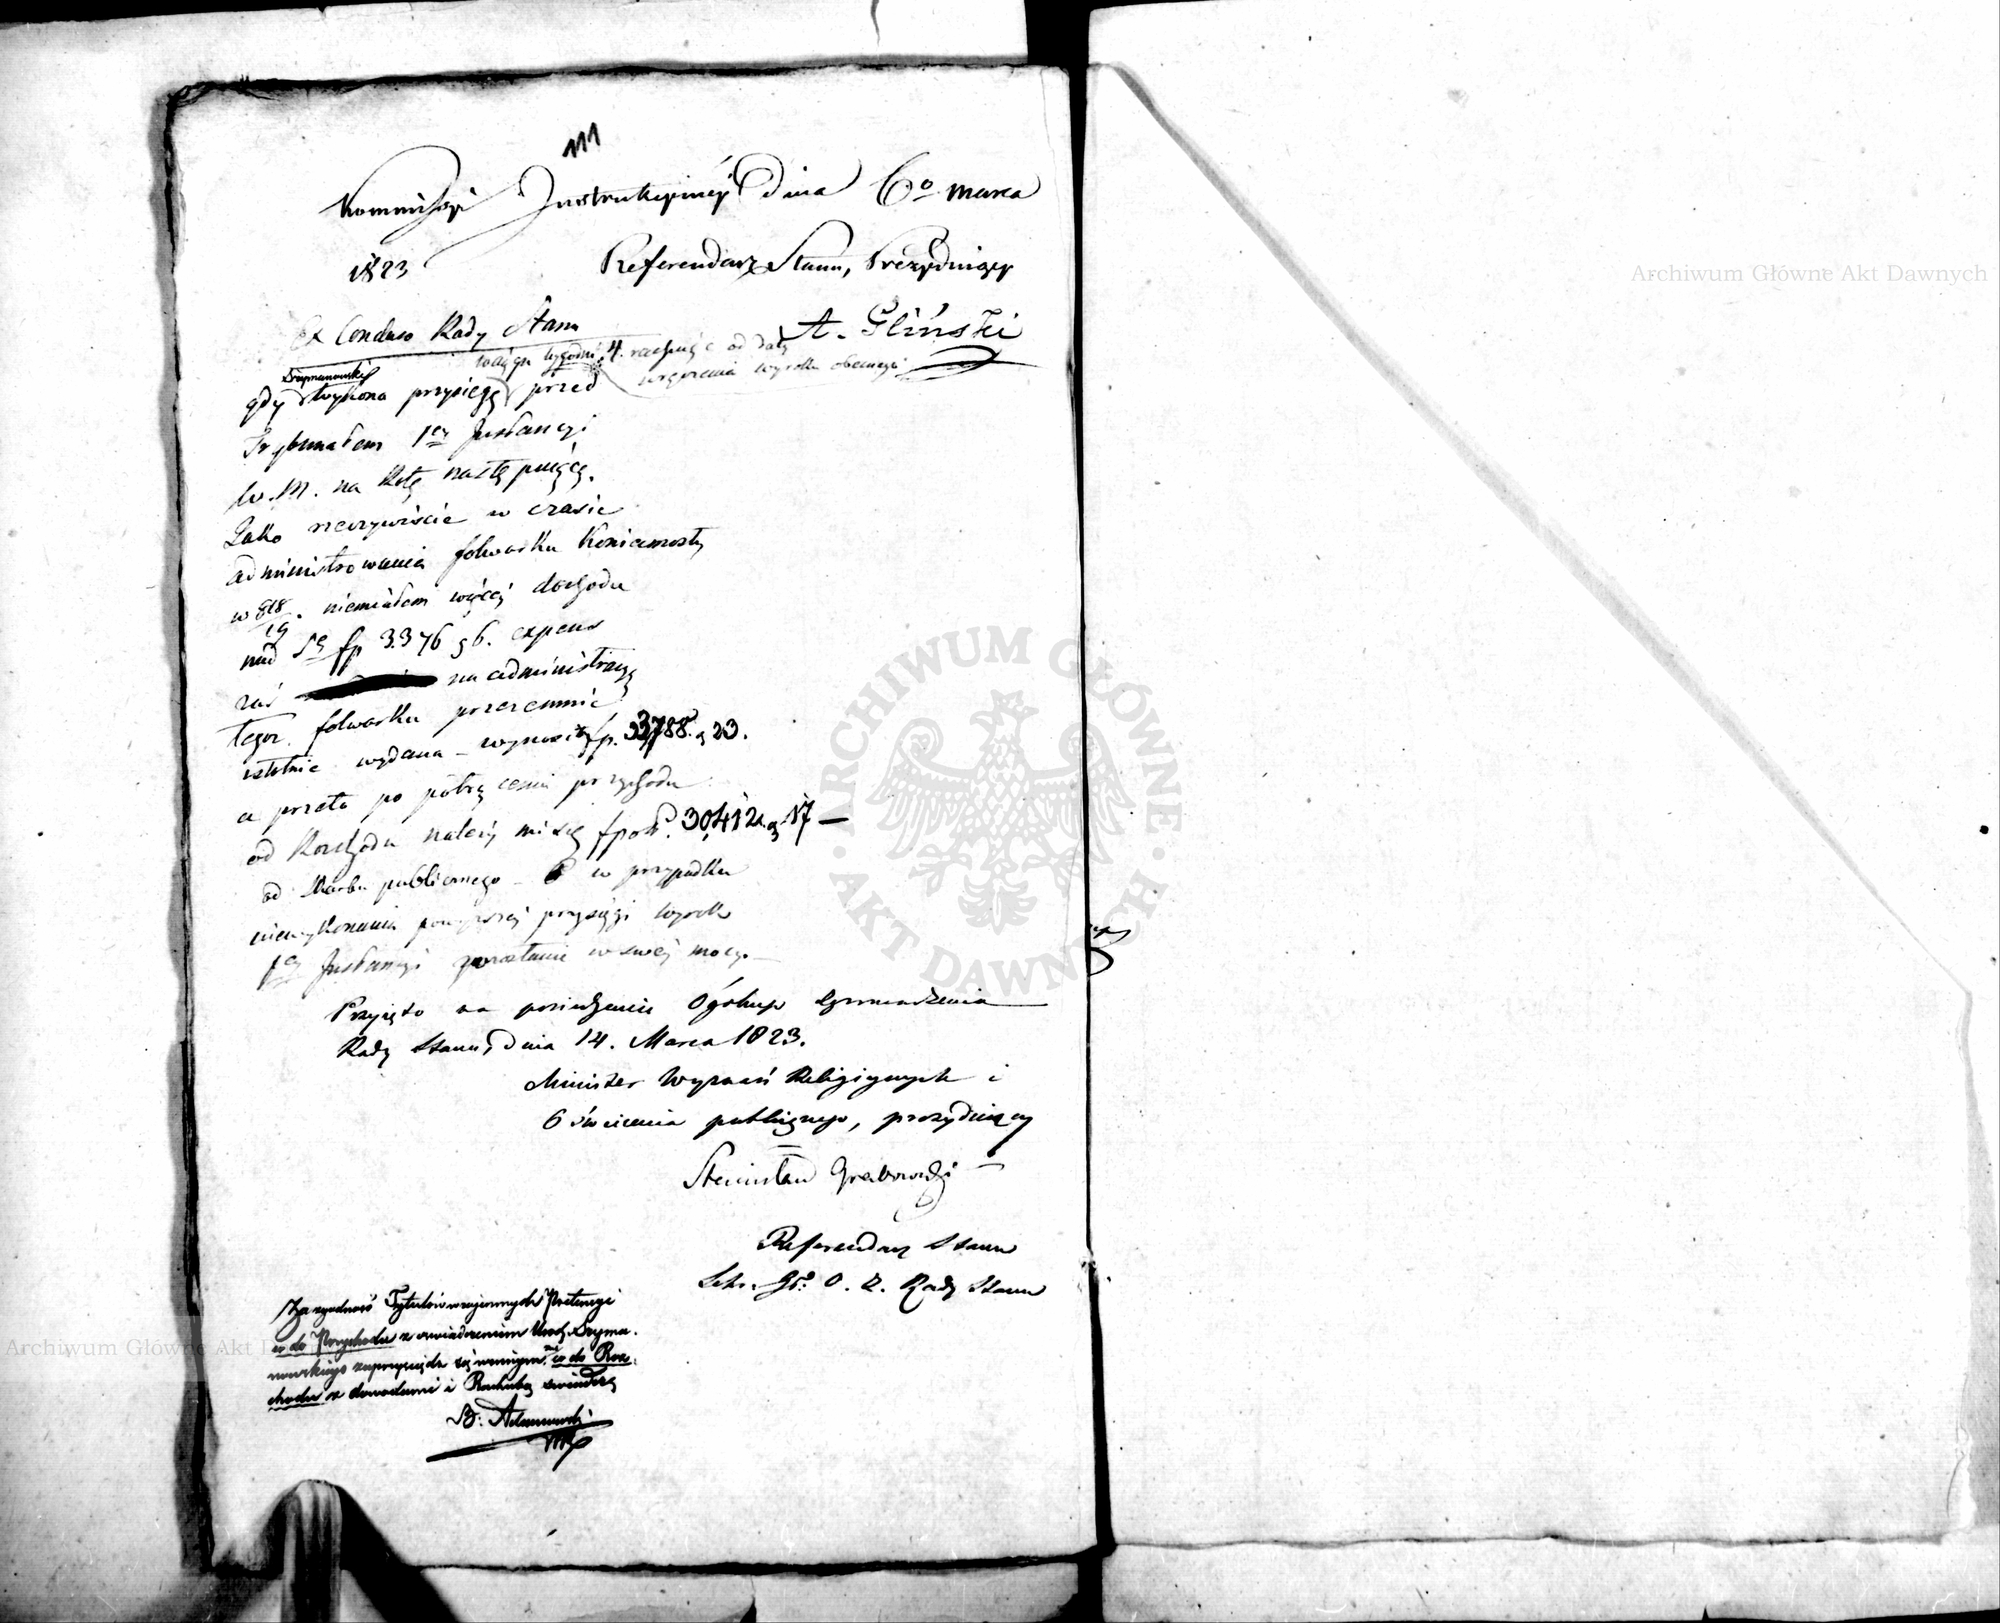 111
Kommissyi Instrukcyinéy dnia 6o marca
1823
Referendarz Stanu, Prezyduiący
A. Gliński
Ex Concluso Rady Stanu
w ciągu tygodni 4. rachuiąc od daty
wręczenia wyroku obecnego
Szymanowski
gdy wykona przysięgę przed
Trybunałem 1ey Instancyi
W. M. na Rotę następuiącą.
Jako rzeczywiście w czasie
administrowania folwarku Koniemosty
w 818/19. niemiałem więcéy dochodu
nad Sę fp 3376 g 6. expens
zaś na administracyą
tegoż folwarku przezemnie
istotnie wydana – wynosi fp. 33,788. g 23.
a przeto po potrąceniu przychodu
od Rozchodu należy mi się fpols. 30,412. g 17 —
od Skarbu publicznego – w przypadku
niewykonania powyższéy przysięgi wyrok
1ey Instancyi zostanie w swéy mocy. —
Przyięto na posiedzeniu Ogólnego Zgromadzenia
Rady Stanu, dnia 14. Marca 1823.
Minister Wyznań Religiynych i
Oświecenia publicznego, prezyduiący
Stanisław Grabowski —
Referendarz Stanu
Sekr. Gł. O. Z. Rady Stanu
Za zgodność Tytułów wzaiemnych Pretensyi
co do Przychodu z oświadczeniem Urod. Szyma-
nowskiego co do Roz-
chodu z dowodami i Rachubą świadczę
Archiwum Główne Akt Dawnych
Archiwum Główne Akt D
ARCHIWUM GŁÓWNE · AKT DAWNYCH ·